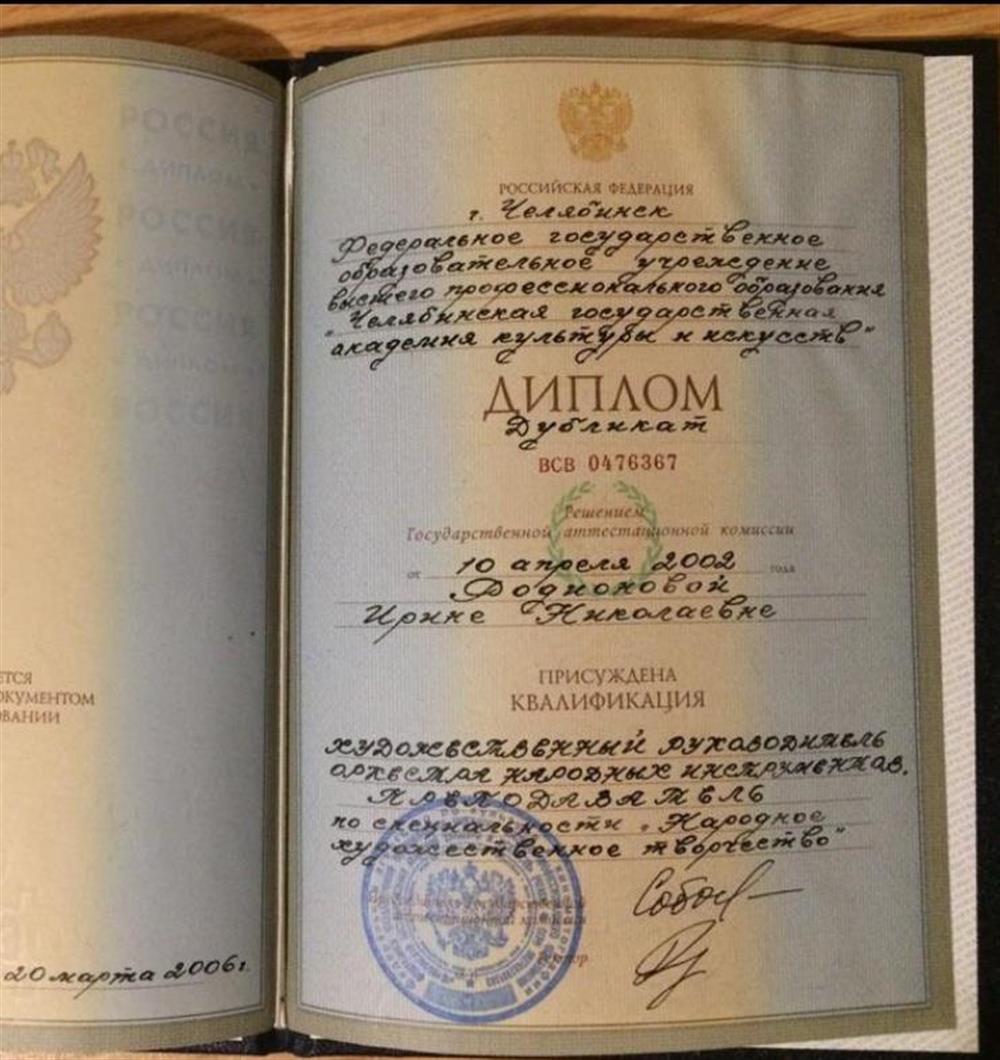 РОССИЯ
• ДИПЛОМ •
РОССИЯ
• ДИПЛОМ •
РОССИЯ
• ДИПЛОМ •
РОССИЯ
ЕТСЯ
ОКУМЕНТОМ
ОВАНИИ
20 марта 2006г.
РОССИЙСКАЯ ФЕДЕРАЦИЯ
г. Челябинск
Федеральное государственное
образовательное учреждение
высшего профессионального образования
"Челябинская государственная
академия культуры и искусств"
ДИПЛОМ
Дубликат
ВСВ 0476367
Решением
Государственной аттестационной комиссии
от 10 апреля 2002 года
Родионовой
Ирине Николаевне
ПРИСУЖДЕНА
КВАЛИФИКАЦИЯ
художественный руководитель
оркестра народных инструментов.
Преподаватель
по специальности „Народное
художественное творчество"
Председатель Государственной
аттестационной комиссии